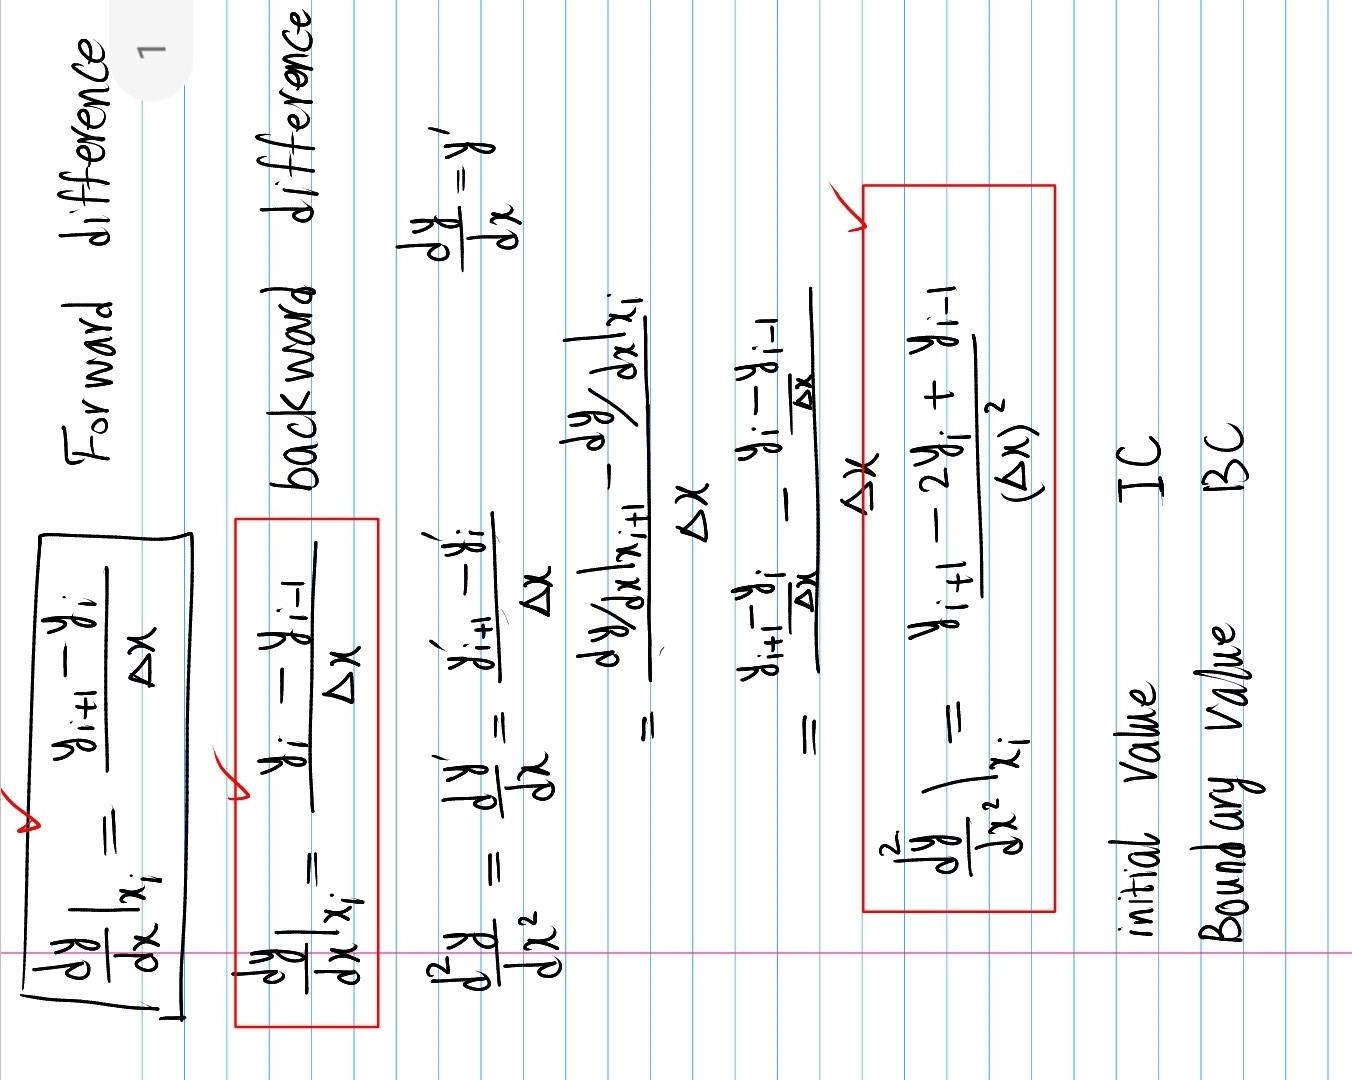 1
dy/dx|xᵢ = (yᵢ₊₁ − yᵢ)/Δx Forward difference
dy/dx|xᵢ = (yᵢ − yᵢ₋₁)/Δx backward difference
d²y/dx² = dy′/dx = (y′ᵢ₊₁ − y′ᵢ)/Δx dy/dx = y′
= (dy/dx|xᵢ₊₁ − dy/dx|xᵢ)/Δx
= ((yᵢ₊₁−yᵢ)/Δx − (yᵢ−yᵢ₋₁)/Δx)/Δx
d²y/dx²|xᵢ = (yᵢ₊₁ − 2yᵢ + yᵢ₋₁)/(Δx)²
initial value IC
Boundary value BC